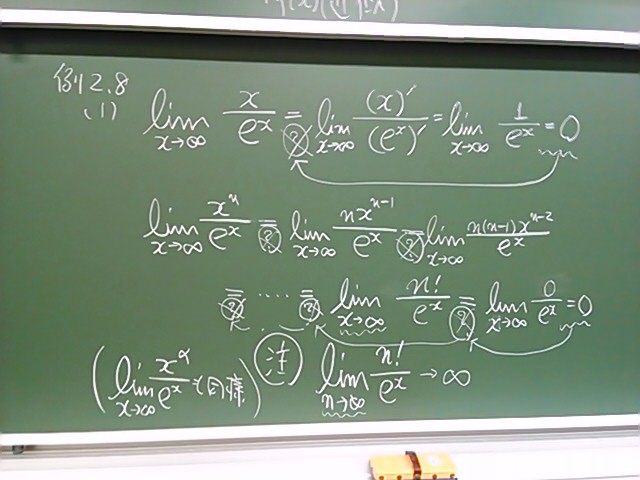 例2.8
(1) lim_{x→∞} x/e^x =(?) lim_{x→∞} (x)'/(e^x)' = lim_{x→∞} 1/e^x = 0
lim_{x→∞} x^n/e^x =(?) lim_{x→∞} nx^{n-1}/e^x =(?) lim_{x→∞} n(n-1)x^{n-2}/e^x
=(?) ‥‥ =(?) lim_{x→∞} n!/e^x =(?) lim_{x→∞} 0/e^x = 0
(lim_{x→∞} x^α/e^x も同様) 注 lim_{n→∞} n!/e^x → ∞